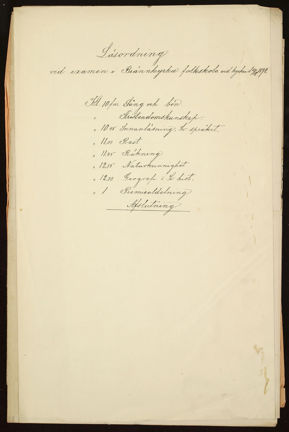 Läsordning
vid examen i Brännkyrka folkskola vid kyrkan 1892.
Kl. 10 fm Sång och bön
" Kristendomskunskap
" 10 Innanläsning, Sv. språket.
" 11 Rast
" 11 Räkning
" 12 Naturkunnighet
" 12 Geografi o. Sv. hist.
" 1 Premieutdelning
Afslutning